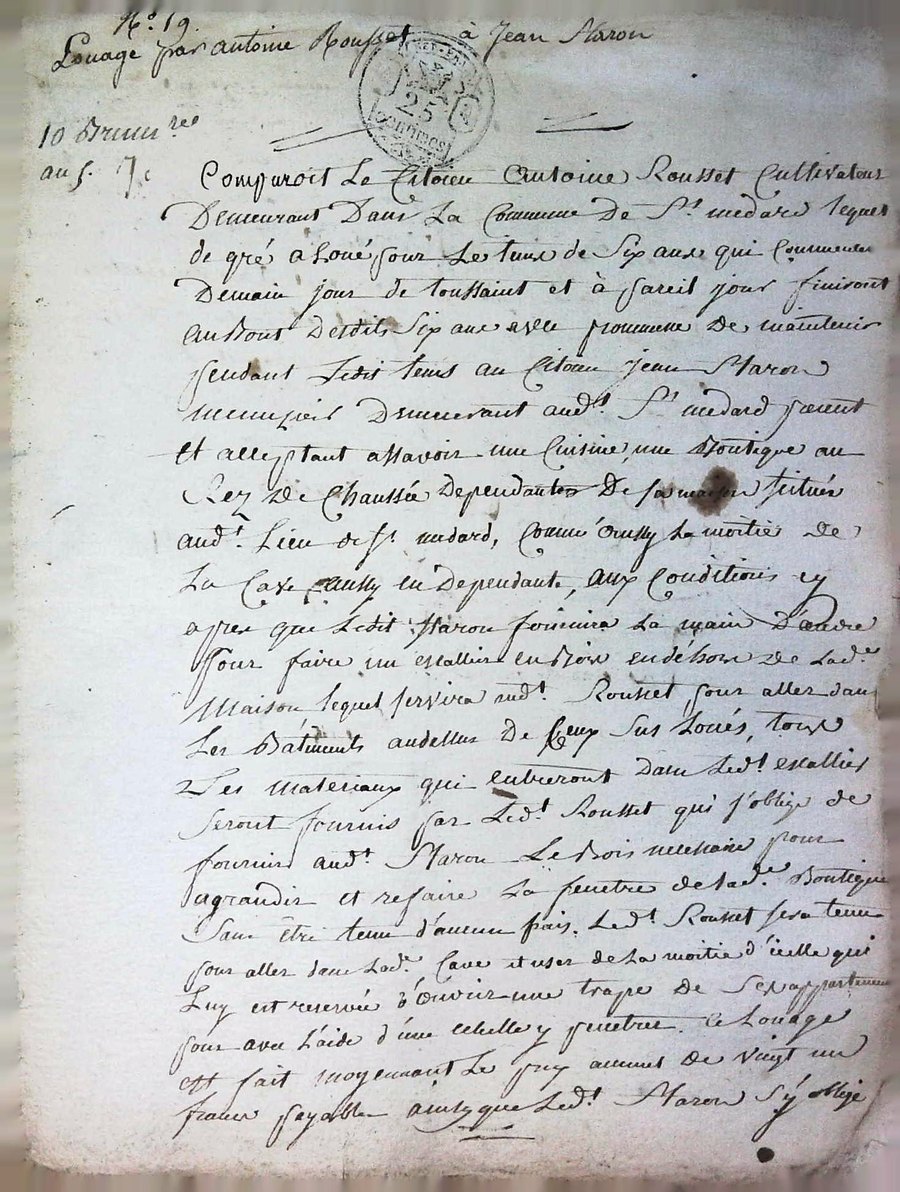 N.° 19.
Louage par antoine Rousset à Jean Maron
25
Centimes
10 Brum.re
an 5.
Comparoit Le Citoien Antoine Rousset Cultivateur
Demeurant Dans La Commune De S.t medard lequel
de gré a Loué pour Le tems de Six ans qui Commencer
Demain jour de toussaint et à pareil jour finiront
au Bout Desdits Six ans avec promesse De maintenir
pendant Ledit tems au Citoien Jean Maron
menuzier Demeurant aud.t S.t medard present
et acceptant assavoir une Cuisine, une Boutique au
Rez De Chaussée Dependantes De sa maison Située
aud.t Lieu de S.t medard, Comm'aussy La moitié de
La Cave aussy en Dependante, aux Conditions cy
apres que Ledit Maron fournira La main D'œuvre
pour faire un escallier en Bois en déhors De Lad.e
Maison lequel servira aud.t Rousset pour aller dans
Les Bâtiments audessus De Ceux Sus Loués, tous
Les materiaux qui entreront dans Led.t escallier
Seront fournis par Led.t Rousset qui s'oblige de
fournir aud.t Maron Le Bois necessaire pour
agrandir et refaire La fenetre de lad.e Boutique
Sans être tenu d'aucun frais. Led.t Rousset sera tenu
pour aller dans Lad.e Cave et user de La moitié d'icelle qui
Luy est reservée d'Ouvrir une trape de Ses appartements
pour avec L'aide d'une echelle y penetrer. Ce Louage
est fait moyennant Le prix annuel de vingt un
francs payables ainsy que Led.t Maron S'y oblige